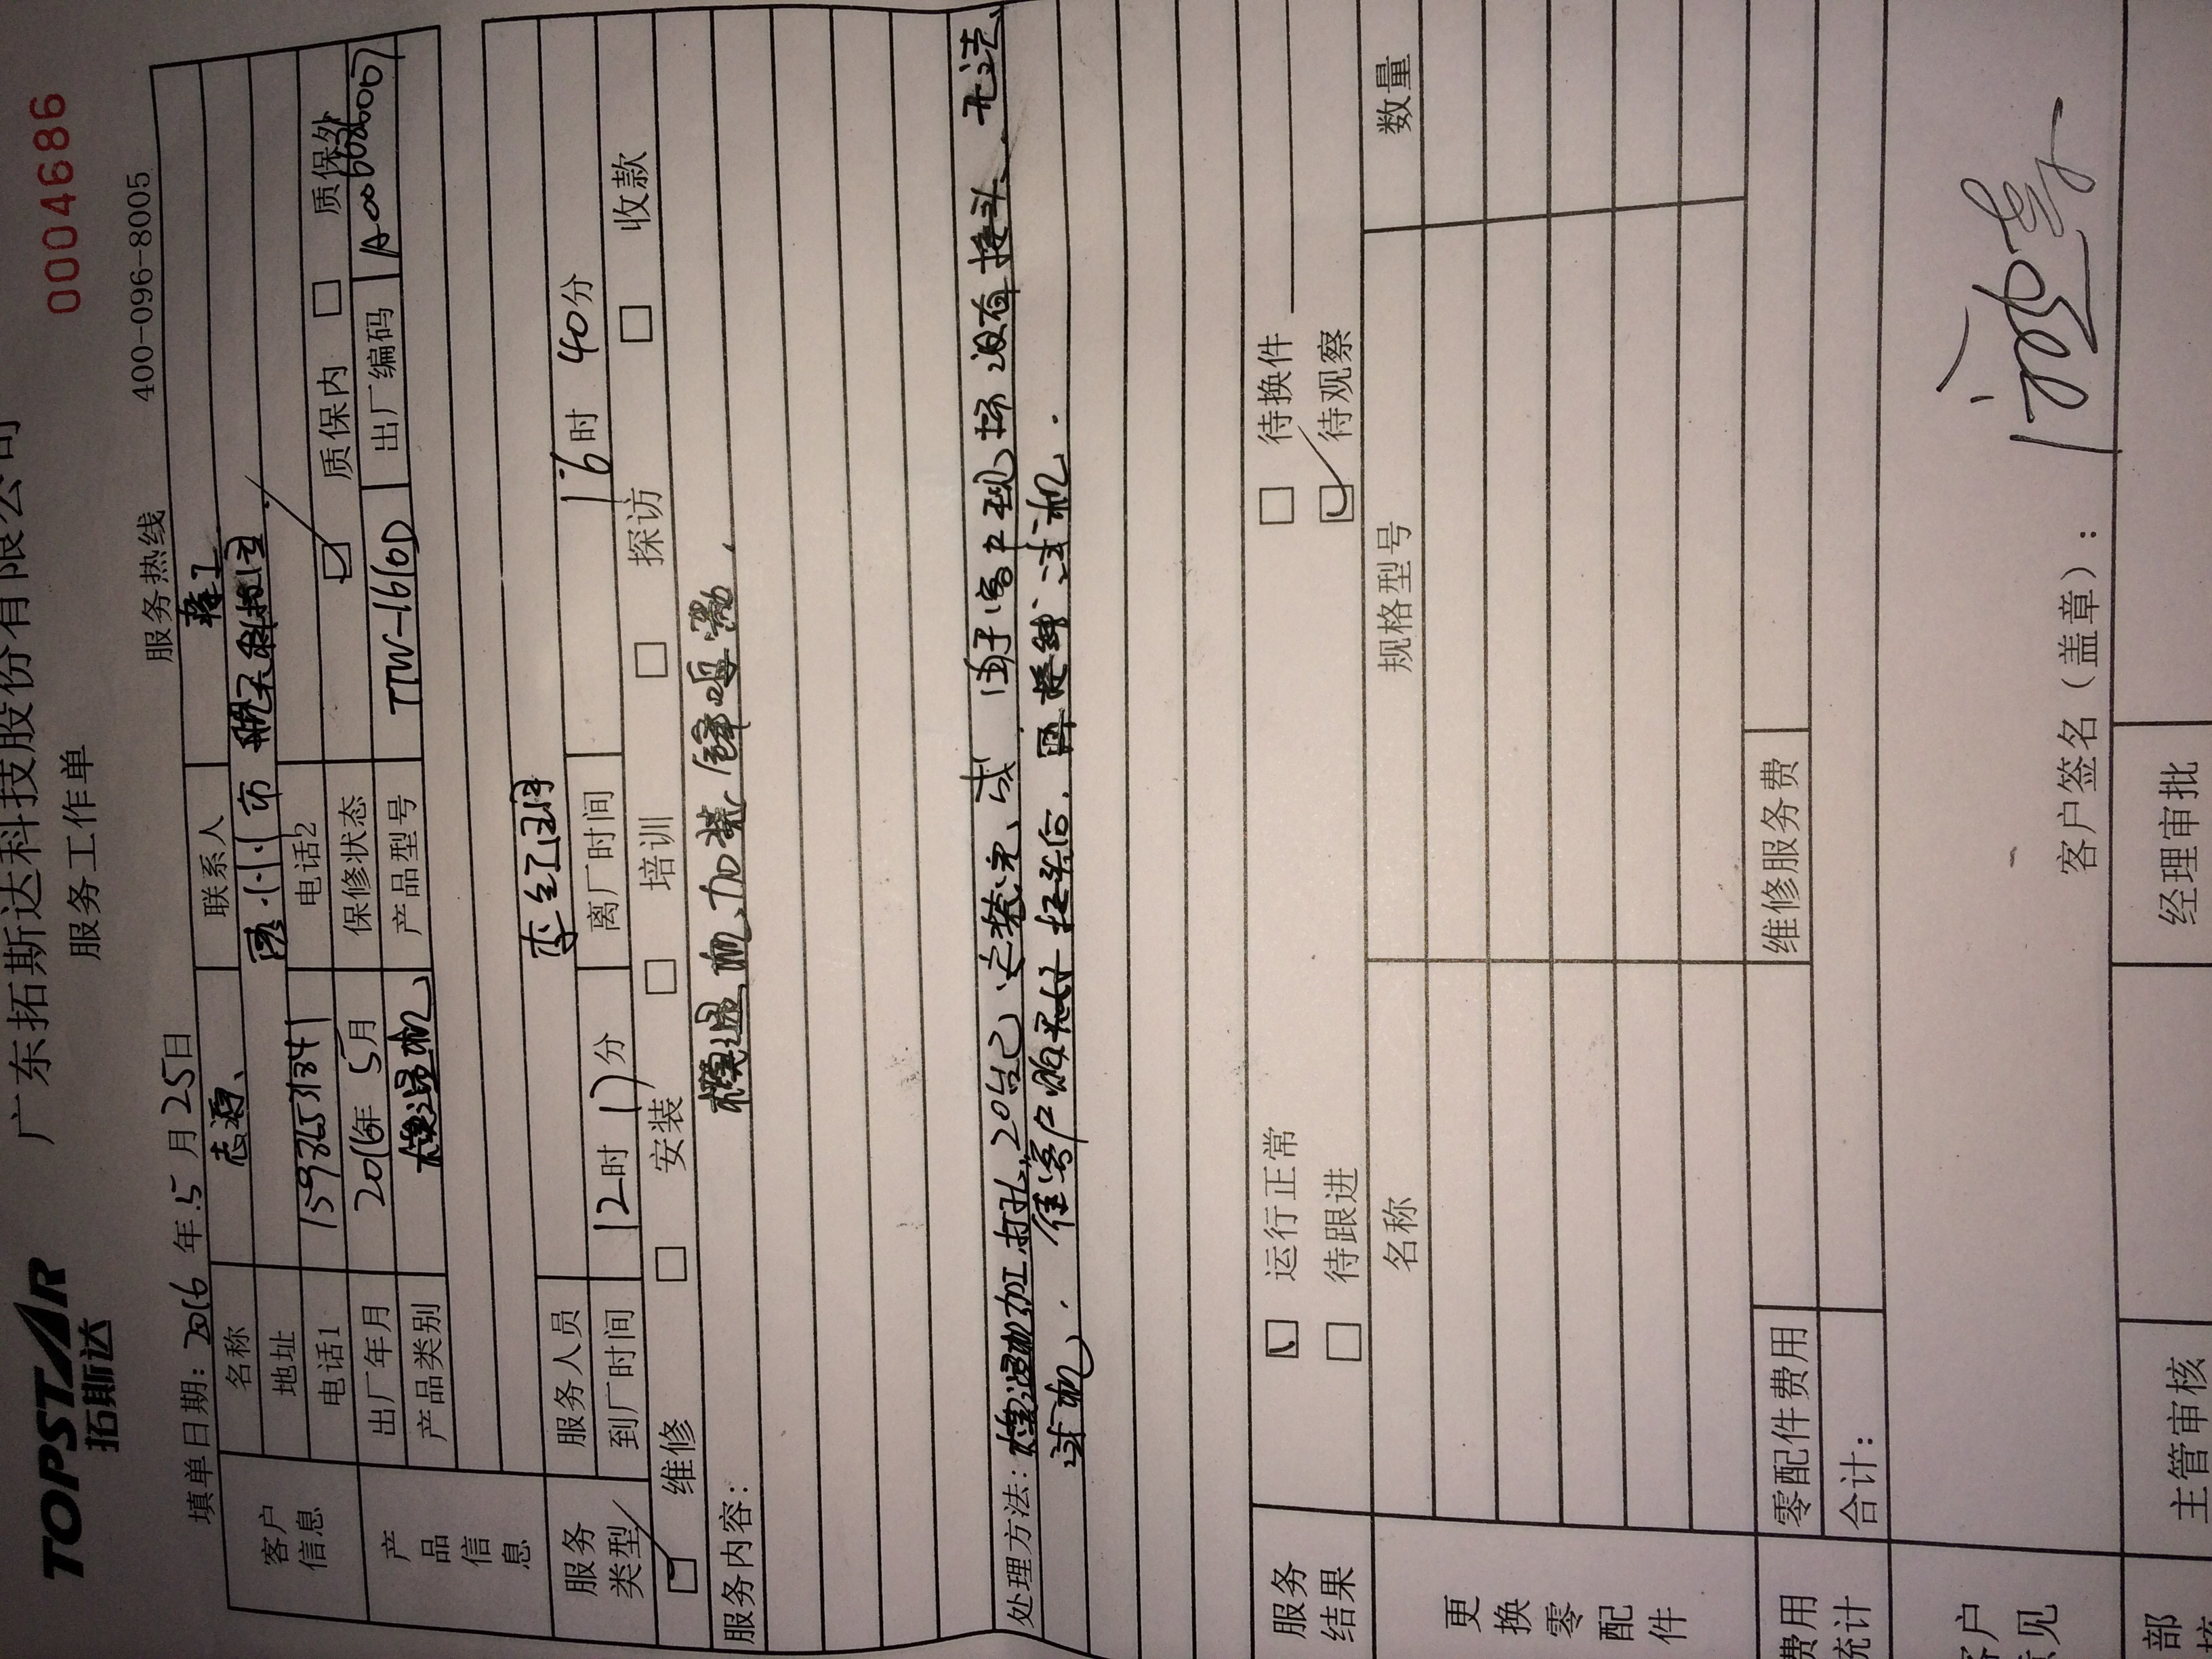 TOPSTAR
拓斯达
广东拓斯达科技股份有限公司
0004686
服务工作单
填单日期: 2016 年 5 月 25 日
服务热线 400-096-8005
客户信息
名称 志源
联系人
地址 惠州市
电话1
电话2
产品信息
出厂年月 2016年 5月
保修状态 质保内 质保外
产品类别 模温机
产品型号 TTW-1610D
出厂编码
服务人员 李红羽
服务类型
到厂时间 12时 17分
离厂时间 16时 40分
维修 安装 培训 探访 收款
服务内容: 模温机加装
处理方法: 模温机加工打孔, 20台已安装完成, 由于客户现场没有接头, 无法
试机. 待客户购买接头后, 再接线试机.
服务结果
运行正常 待换件
待跟进 待观察
更换零配件
名称 规格型号 数量
费用统计
零配件费用 维修服务费
合计:
客户意见
客户签名 (盖章):
主管审核 经理审批